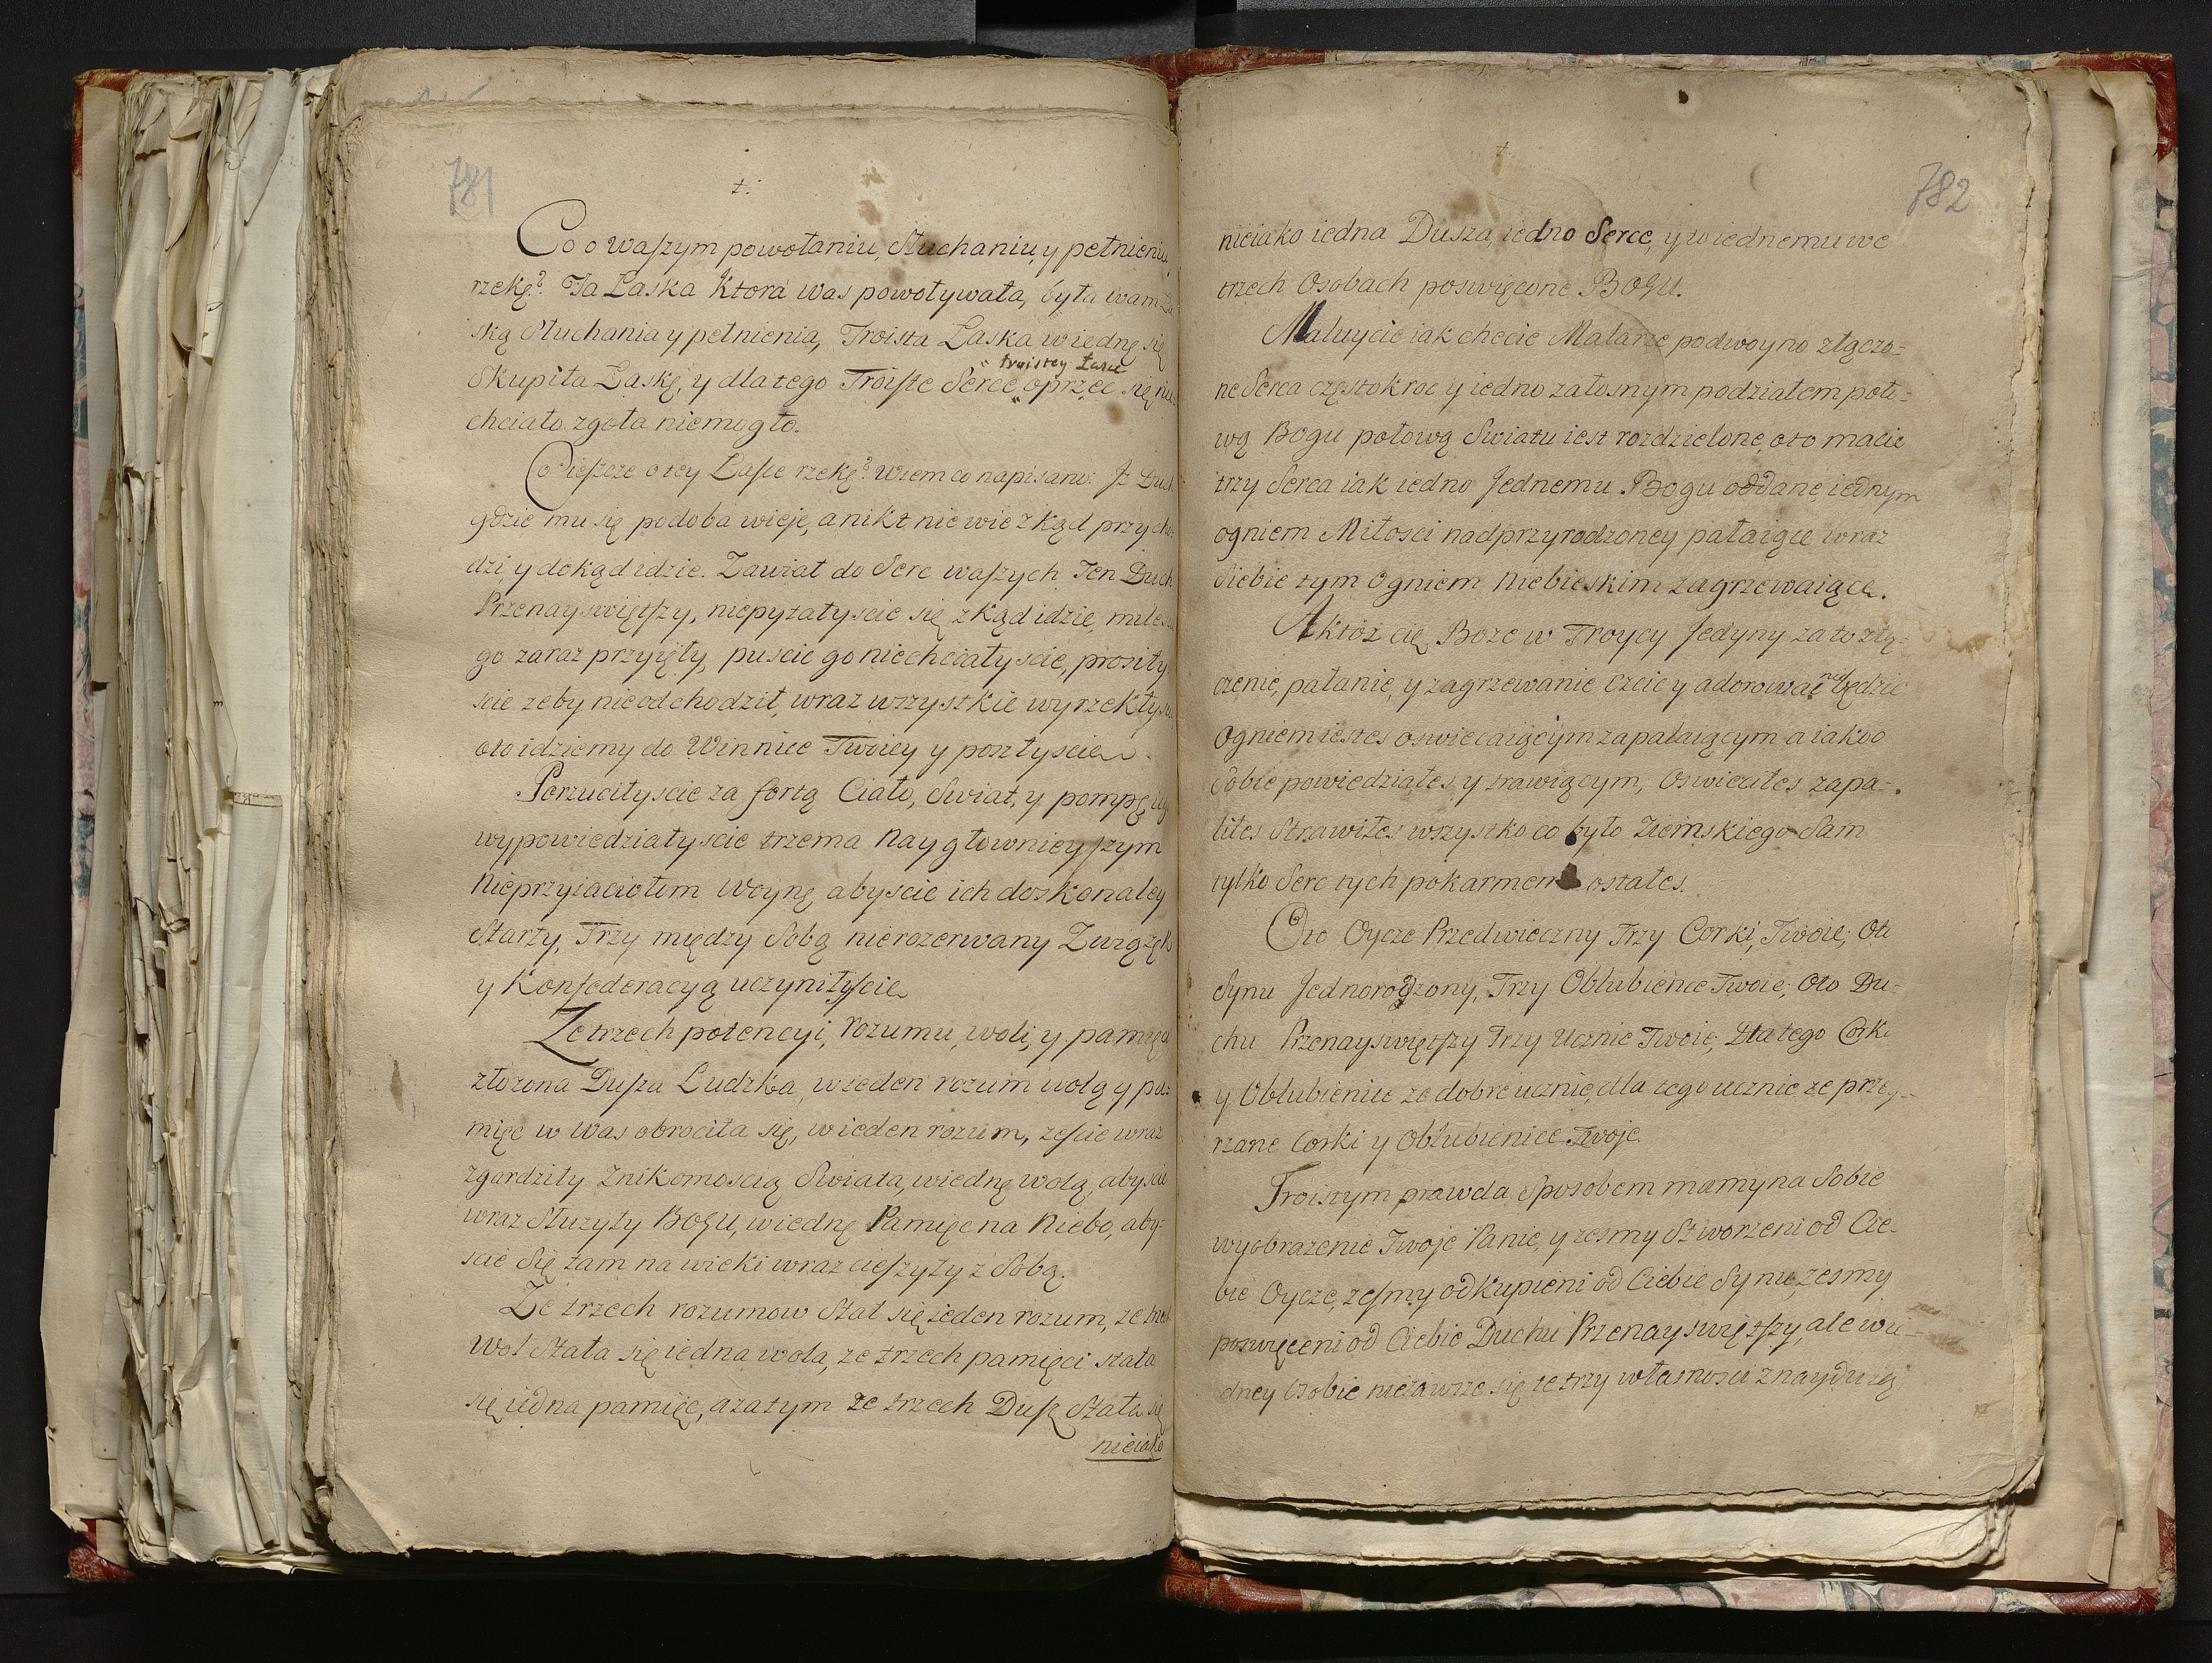 781
Co o waszym powołaniu, słuchaniu, y pełnieniu
rzekę? Ta Łaska Ktora was powoływała, była wam Ła-
ską słuchania y pełnienia, Troista Łaska w iednę się
troistey Łasce
skupiła Łaskę, y dlatego Troiste Serce oprzec się nie
chciało, zgoła niemogło.
Co ieszcze o tey Łasce rzekę? wiem co napisano: Jż Duch
gdzie mu się podoba wieje, a nikt nie wie zkąd przycho-
dzi, y dokąd idzie. Zawiał do Serc waszych Ten Duch
Przenayswiętszy, niepytałyscie się zkąd idzie, miłes-
go zaraz przyięły, puscic go niechciałyscie, prosiły-
scie zeby nieodchodził, wraz wszystkie wyrzekłysc
oto idziemy do Winnice Twoiey y poszłyscie.
Porzuciłyscie za fortą Ciało, Swiat, y pompę ieg
wypowiedziałyscie trzema Naygłownieyszym
Nieprzyiaciołom Woynę, abyscie ich doskonaley
Starły, Trzy między Sobą nierozerwany Związek
y Konfederacyą uczyniłyscie
Ze trzech potencyi, rozumu, woli, y pamięci
złozona Dusza Ludzka, w ieden rozum wolą y pa-
mięc w Was obrociła się, w ieden rozum, zescie wraz
zgardziły Znikomoscią Swiata, w iednę wolą, abyscie
wraz Słuzyły BOGU, w iednę Pamięc na Niebo, aby-
scie Się tam na wieki wraz cieszyły z Sobą.
Ze trzech rozumow Stał się ieden rozum, ze trzech
Wol Stała się iedna wola, ze trzech pamięci stała
się iedna pamięc, a zatym ze trzech Dusz Stała się
nieiako
782
nieiako iedna Dusza, iedno Serce, y to iednemu we
trzech Osobach poswięcone BOGU.
Maluycie iak chcecie Malarze podwoyno złączo-
ne Serca częstokroc y iedno załosnym podziałem poło-
wą Bogu połową Swiatu iest rozdzielone, oto macie
trzy Serca iak iedno Jednemu Bogu oddane, iednym
ogniem Miłosci nadprzyrodzoney pałaiące wraz
Siebie tym Ogniem Niebieskim zagrzewaiące.
A ktoz cię, Boze w Troycy Jedyny za to złą-
czenie, pałanie, y zagrzewanie czcic y adorowac nie będzie
Ogniem iestes oswiecaiącym zapalaiącym a iako o
Sobie powiedziałes y trawiącym, Oswieciłes zapa-
liłes Strawiłes wszystko co było Ziemskiego Sam
tylko Serc tych pokarmem ostałes.
Oto Oycze Przedwieczny Trzy Corki, Twoie; Oto
Synu Jednorodzony, Trzy Oblubience Twoie; Oto Du-
chu Przenayswiętszy Trzy Ucznie Twoie; Dla tego Cork
y Oblubienice ze dobre ucznie, dla tego ucznie ze przey-
rzane Corki y Oblubienice Twoje.
Troistym prawda Sposobem mamy na Sobie
wyobrazenie Twoje Panie, y zesmy Stworzeni od Cie-
bie Oycze, zesmy odkupieni od Ciebie Synu, zesmy
poswięceni od Ciebie Duchu Przenayswiętszy, ale w ie-
dney Osobie niezawsze się te trzy własnosci znayduią